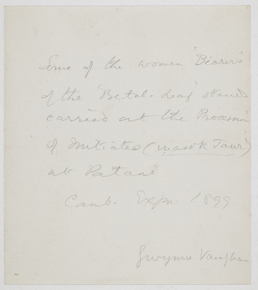 Some of the women Bearers
of the Betel-leaf stands
carried at the Procession
of Initiates (masok Jawi)
at Patani
Camb. Expn. 1899
Gwynne Vaughan